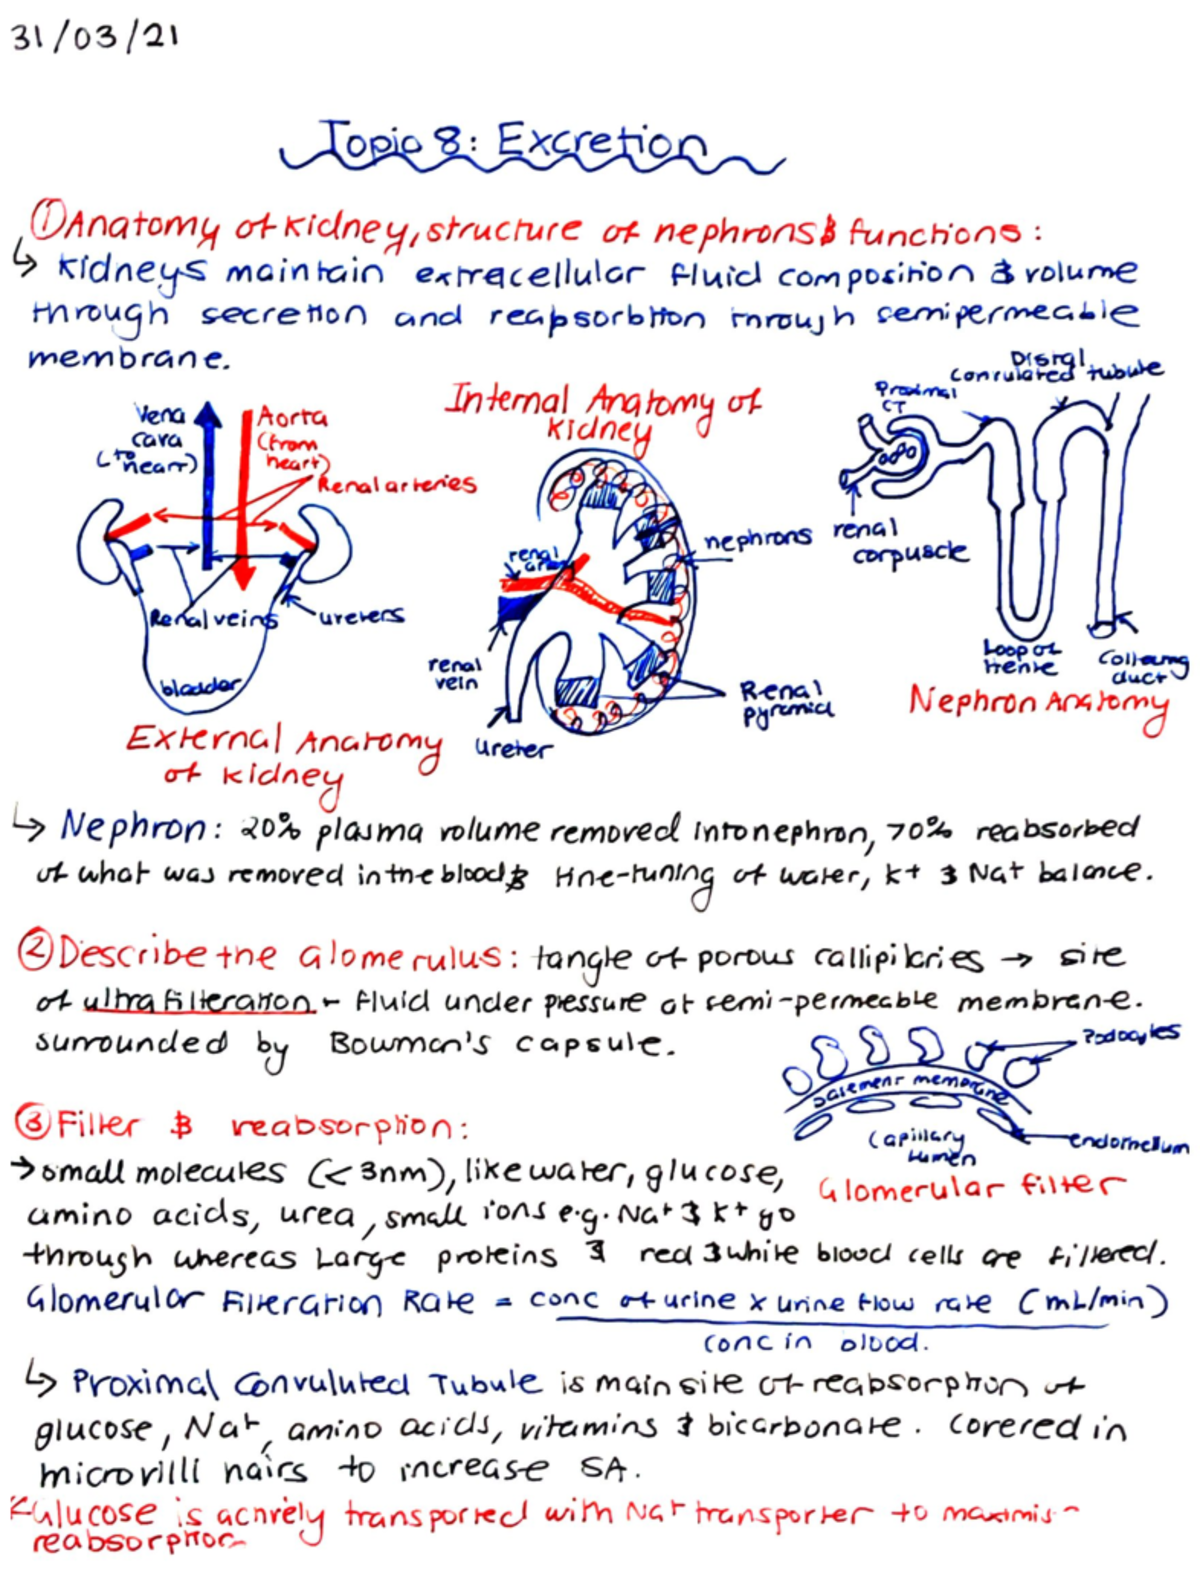 31/03/21
Topic 8: Excretion
①Anatomy of kidney, structure of nephrons & functions:
↳ kidneys maintain extracellular fluid composition & volume
through secretion and reabsorbtion through semipermeable
membrane.
Vena
cava
(to heart)
Aorta
(from
heart)
Renal arteries
Renal veins
ureters
bladder
External Anatomy
of kidney
Internal Anatomy of
kidney
renal
nephrons
renal
vein
ureter
Renal
pyramid
Distal
convulated tubule
Proximal
CT
renal
corpuscle
Loop of
Henle
Collecting
duct
Nephron Anatomy
↳ Nephron: 20% plasma volume removed into nephron, 70% reabsorbed
of what was removed in the blood & fine-tuning of water, K+ & Na+ balance.
②Describe the Glomerulus: tangle of porous → site
of ultrafilteration - fluid under pressure at semi-permeable membrane.
surrounded by Bowman's capsule.
Podocytes
basement membrane
Capillary
lumen
endothelium
Glomerular filter
③Filter & reabsorption:
→ small molecules (<3nm), like water, glucose,
amino acids, urea, small ions e.g. Na+ & K+ go
through whereas Large proteins & red & white blood cells are filtered.
Glomerular Filteration Rate = conc of urine x urine flow rate (mL/min)
conc in blood.
↳ Proximal Convuluted Tubule is main site of reabsorption of
glucose, Na+, amino acids, vitamins & bicarbonate. Covered in
microvilli hairs to increase SA.
Glucose is actively transported with Na+ transporter to maximise
reabsorption